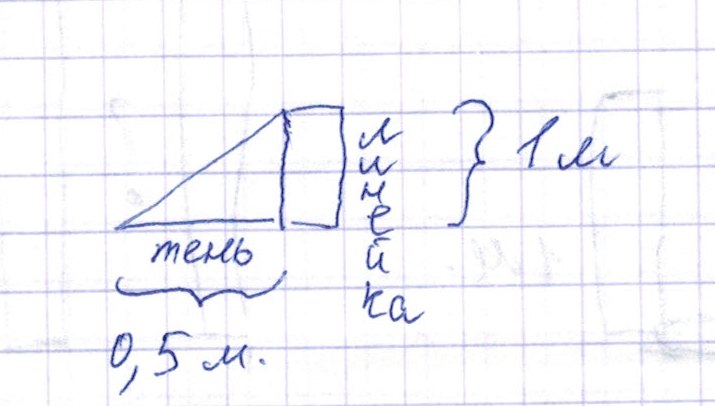 линейка
1 м
тень
0,5 м.